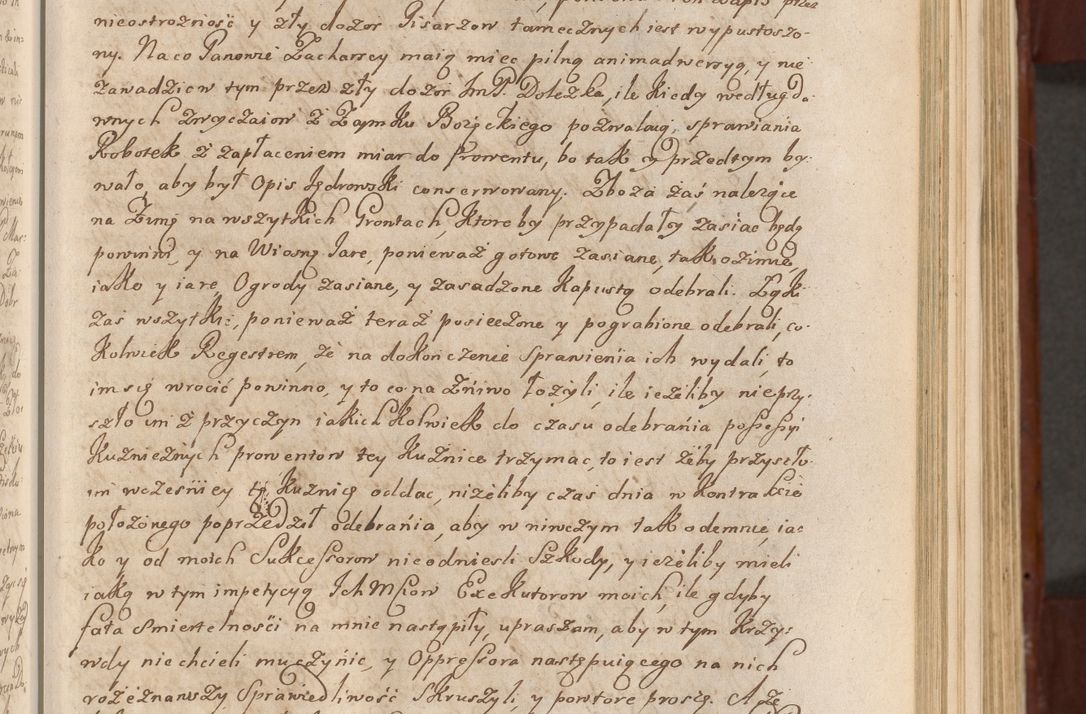 nieostrożność y zły dozór Pisarzow tamecznych iest wypustoszo-
ny. Na co Panowie Zacharscy maią miec pilną animadwersyą, y nie
zawadzi e w tym przez zły dozór ImP. Dołezka, ile kiedy według da-
wnych zwyczaiow z Zamku Bożęckiego pozwalaią, sprawiania
Robotek z zapłaceniem miar do Prowentu, bo tak y przedtym by-
wało, aby był Opis Jędrowski conserwowany. Zboża zaś należące
na Zimę na wszytkich Grontach, ktoreby przypadały zasiac będą
powinni, y na Wiosnę Jare, ponieważ gotowe zasiane, tak ozimie,
iako y iare, Ogrody zasiane, y zasadzone Kapustą odebrali. Łąki
zaś wszytkie, ponieważ teraz posieczone y pograbione odebrali, co-
kolwiek Regestrem, że na dokończenie sprawienia ich wydali, to
im się wrocić powinno, y to co na Żniwo łożyli, ile ieżeliby nieprzy-
szło im z przyczyn iakichkolwiek do czasu odebrania possessyi
Kuzniecznych prowentow tey Kuznice trzymac, to iest żeby przyszło
im wczesniey tę Kuznicę oddac, niżeliby czas dnia w kontrakcie
położonego poprzedził odebrania, aby w niwczym tak odemnie, ia-
ko y od moich Sukcessorow nieodniesli Szkody, y ieżeliby mieli
iaką w tym impetycyą Ich Mciow Exekutorow moich, ile gdyby
fata Smiertelności na mnie nastąpiły, upraszam, aby w tym krzy-
wdy niechcieli mu czynic, y Oppressora następuiącego na nich
rozeznawszy Sprawiedliwość skruszyli, y powtore proszę. A że